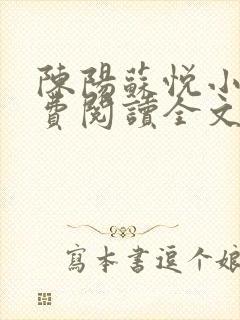 陳陽蘇悦小
費閱讀全文
寫本書逗个娘